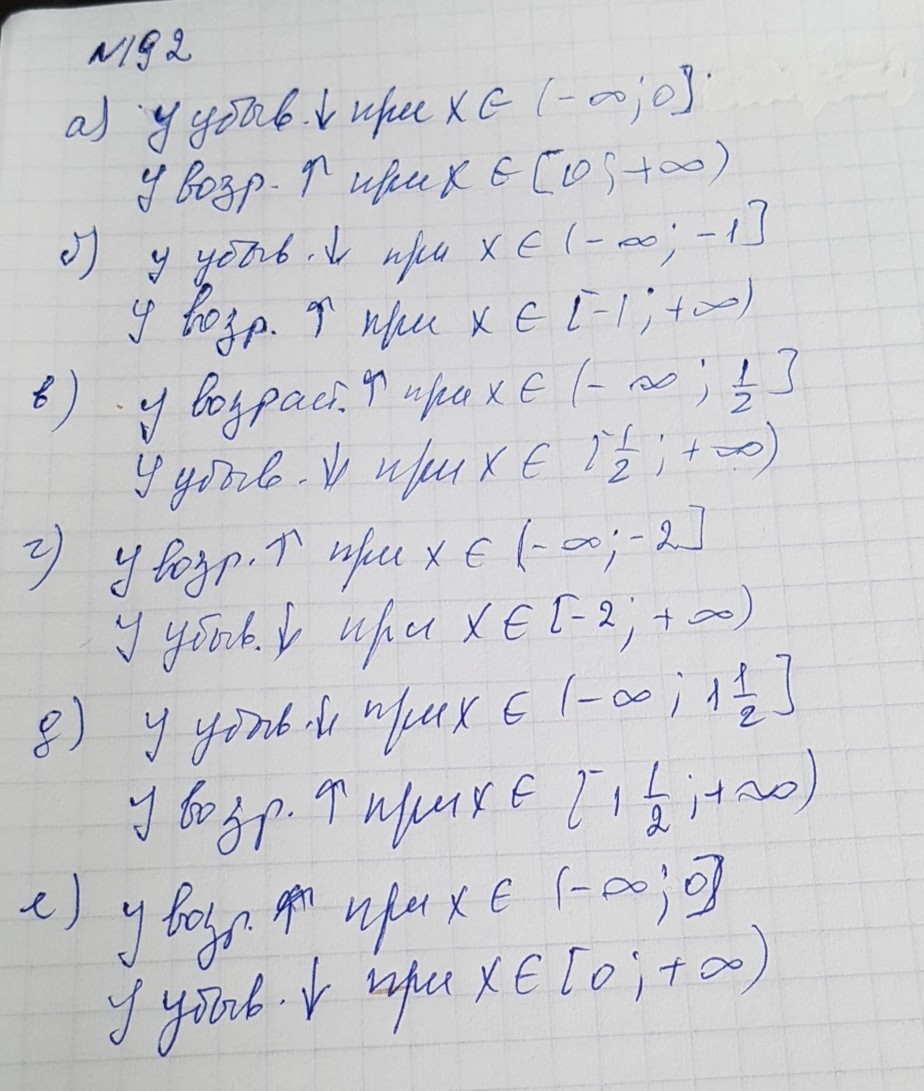 №192
а) у убыв. ↓ при x ∈ (-∞; 0]
у возр. ↑ при x ∈ [0; +∞)
б) у убыв. ↓ при x ∈ (-∞; -1]
у возр. ↑ при x ∈ [-1; +∞)
в) у возраст. ↑ при x ∈ (-∞; 1/2]
у убыв. ↓ при x ∈ [1/2; +∞)
г) у возр. ↑ при x ∈ (-∞; -2]
у убыв. ↓ при x ∈ [-2; +∞)
д) у убыв. ↓ при x ∈ (-∞; 1 1/2]
у возр. ↑ при x ∈ [1 1/2; +∞)
е) у возр. ↑ при x ∈ (-∞; 0]
у убыв. ↓ при x ∈ [0; +∞)